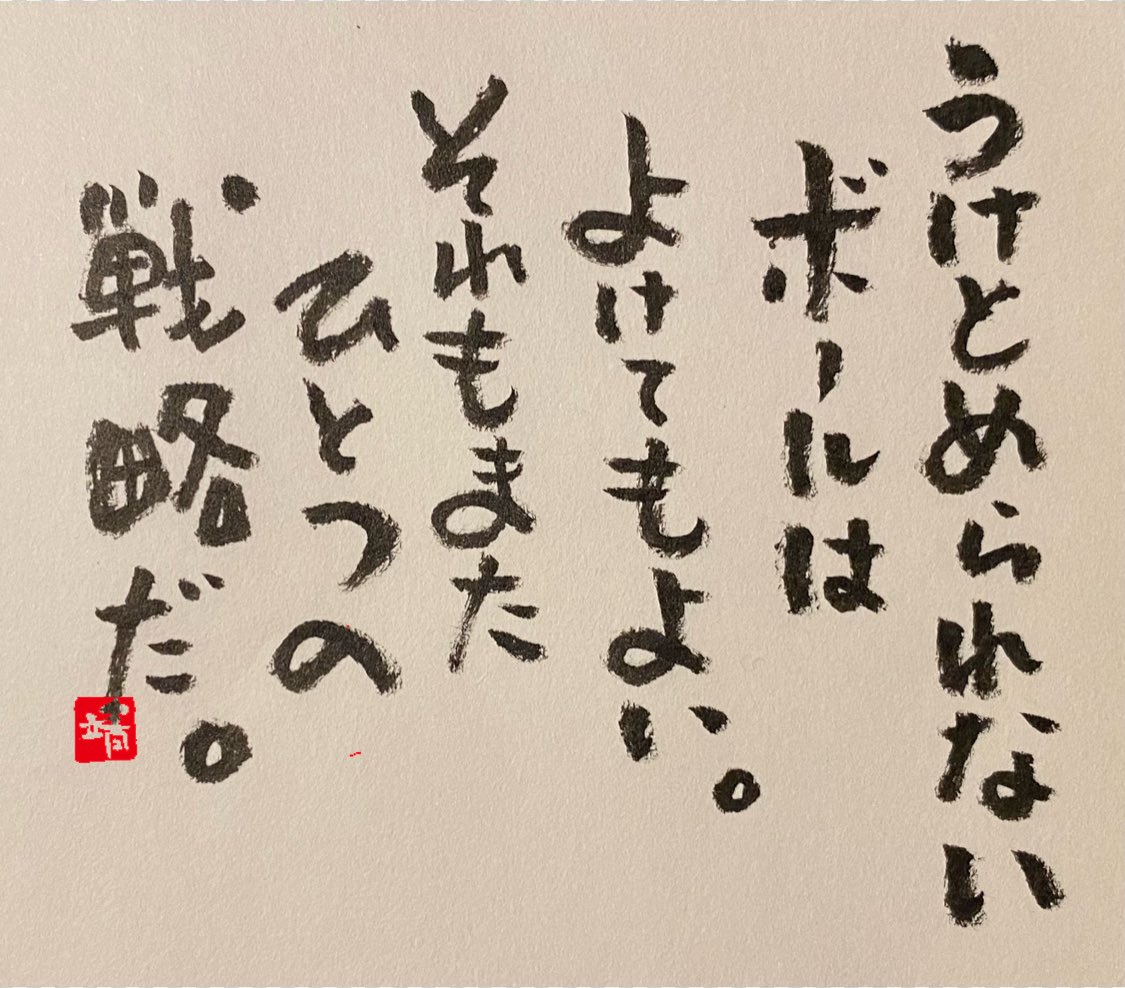 うけとめられない
ボールは
よけてもよい。
それもまた
ひとつの
戦略だ。
靖